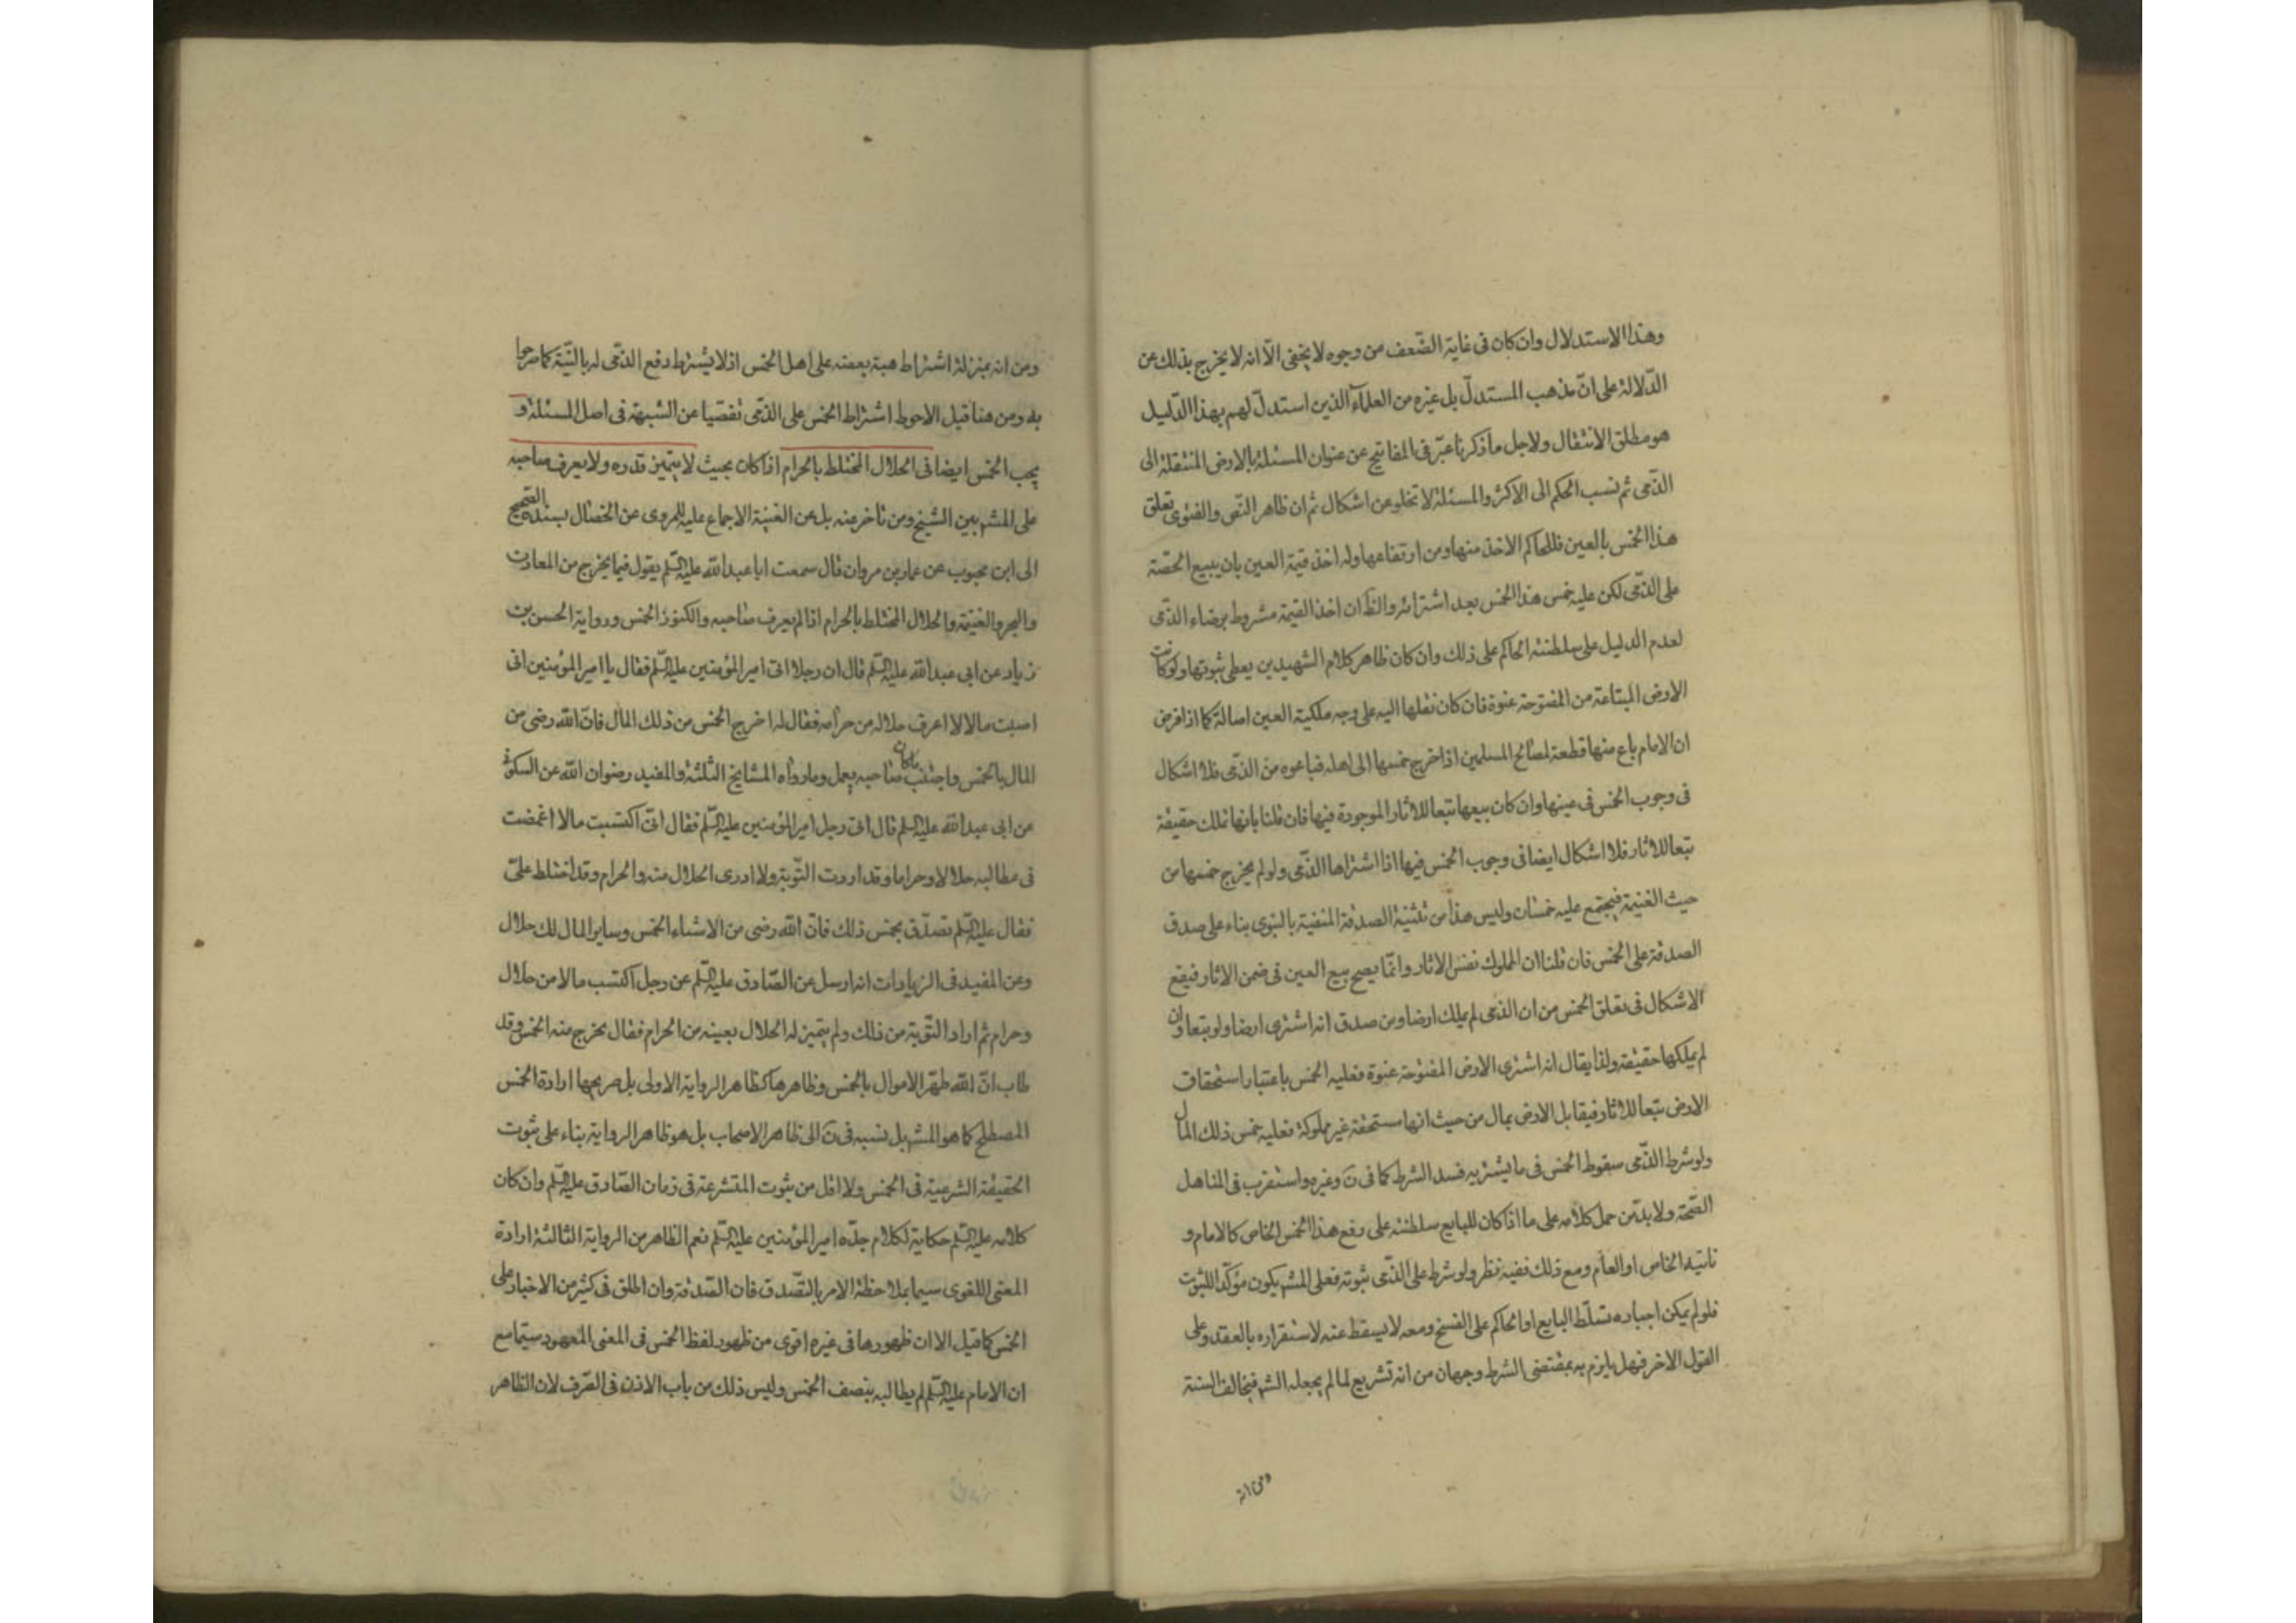 وهذا الاستدلال وان كان فى غاية الضّعف من وجوه لا يخفى الّا انه لا يخرج بذلك عن
الدّلالة على انّ مذهب المستدلّ بل غيره من العلمآء الذين استدلّ لهم بهذا الدّليل
هو مطلق الانتقال ولاجل ما ذكرنا عبّر فى المفاتيح عن عنوان المسئلة بالارض المنتقلة الى
الذّمى ثم نسب الحكم الى الاكثر والمسئلة لا تخلو عن اشكال ثم ان ظاهر النّص والفتوى تعلق
هذا الخمس بالعين فللحاكم الاخذ منها ومن ارتفاعها وله اخذ قيمة العين بان يبيع الحصّة
على الذّمى لكن عليه خمس هذا الخمس بعد اشترائه والظ ان اخذ القيمة مشروط برضاء الذّمى
لعدم الدليل على سلطنة الحاكم على ذلك وان كان ظاهر كلام الشهيدين يعطى ثبوتها ولو كانت
الارض المبتاعة من المفتوحة عنوة فان كان نقلها اليه على وجه ملكية العين اصالة كما اذا فرض
ان الامام باع منها قطعة لمصالح المسلمين اذا خرج خمسها الى اهله فباعوه من الذّمى فلا اشكال
فى وجوب الخمس فى عينها وان كان بيعها تبعا للاثار الموجودة فيها فان قلنا بانها تملك حقيقة
تبعا للاثار فلا اشكال ايضا فى وجوب الخمس فيها اذا اشتراها الذّمى ولو لم يخرج خمسها من
حيث الغنيمة فيجتمع عليه خمسان وليس هذا من تثنية الصدقة المنفية بالنبوى بناء على صدق
الصدقة على الخمس فان قلنا ان المملوك نفس الاثار وانّما يصح بيع العين فى ضمن الاثار فيقع
الاشكال فى تعلق الخمس من ان الذمى لم يملك ارضا ومن صدق انه اشترى ارضا ولو تبعا وان
لم يملكها حقيقة ولذا يقال انه اشترى الارض المفتوحة عنوة فعليه الخمس باعتبار استحقاق
الارض تبعا للاثار فيقابل الارض بمال من حيث انها مستحقة غير مملوكة فعليه خمس ذلك المال
ولو شرط الذّمى سقوط الخمس فى ما يشتريه فسد الشرط كما فى ن وغيره واستقرب فى المناهل
الصّحة ولا بد من حمل كلامه على ما اذا كان للبايع سلطنة على رفع هذا الخمس الخاص كالامام و
نائبه الخاص او العام ومع ذلك ففيه نظر ولو شرط على الذّمى ثبوته فعلى المشه يكون مؤكّدا للثبوت
فلو لم يمكن اجباره تسلّط البايع او الحاكم على الفسخ ومعه لا يسقط عنه لاستقراره بالعقد وعلى
القول الاخر فهل يلزم به بمقتضى الشرط وجهان من انه تشريع لما لم يجعله الشه فيخالف السنة
ومن انه
ومن انه بمنزلة اشتراط هبة بعضه على اهل الخمس اذ لا يشترط دفع الذّمى له بالنيّة كما صرحوا
به ومن هنا قيل الاحوط اشتراط الخمس على الذّمى تفصّيا عن الشبهة فى اصل المسئلة و
يجب الخمس ايضا فى الحلال المختلط بالحرام اذا كان بحيث لا يتميز قدره ولا يعرف صاحبه
على المشه بين الشيخ ومن تأخر عنه بل عن الغنية الاجماع عليه للمروى عن الخصال بسنده الصحيح
الى ابن محبوب عن عمار بن مروان قال سمعت ابا عبد الله عليه السّلم يقول فيما يخرج من المعادن
والبحر والغنيمة والحلال المختلط بالحرام اذا لم يعرف صاحبه والكنوز الخمس ورواية الحسن بن
زياد عن ابى عبد الله عليه السّلم قال ان رجلا اتى امير المؤمنين عليه السّلم فقال يا امير المؤمنين انى
اصبت مالا لا اعرف حلاله من حرامه فقال له اخرج الخمس من ذلك المال فانّ الله رضى من
المال بالخمس واجتنب ما كان صاحبه يعمل وما رواه المشايخ الثلثة والمفيد رضوان الله عن السكونى
عن ابى عبد الله عليه السّلم قال اتى رجل امير المؤمنين عليه السّلم فقال انّى اكتسبت مالا اغمضت
فى مطالبه حلالا وحراما وقد اردت التّوبة ولا ادرى الحلال منه والحرام وقد اختلط علىّ
فقال عليه السّلم تصدّق بخمس ذلك فانّ الله رضى من الاشياء الخمس وساير المال لك حلال
وعن المفيد فى الزيادات انه ارسل عن الصّادق عليه السّلم عن رجل اكتسب مالا من حلال
وحرام ثم اراد التّوبة من ذلك ولم يتميز له الحلال بعينه من الحرام فقال يخرج منه الخمس وقد
طاب انّ الله طهّر الاموال بالخمس وظاهرها كظاهر الرواية الاولى بل صريحها ارادة الخمس
المصطلح كما هو المشه بل نسبه فى ن الى ظاهر الاصحاب بل هو ظاهر الرواية بناء على ثبوت
الحقيقة الشرعية فى الخمس ولا اقل من ثبوت المتشرعة فى زمان الصّادق عليه السّلم وان كان
كلامه عليه السّلم حكاية لكلام جدّه امير المؤمنين عليه السّلم نعم الظاهر من الرواية الثالثة ارادة
المعنى اللغوى سيما بملاحظة الامر بالتّصدق فان الصّدقة وان اطلق فى كثير من الاخبار على
الخمس كما قيل الا ان ظهورها فى غيره اقوى من ظهور لفظ الخمس فى المعنى المعهود سيّما مع
ان الامام عليه السّلم لم يطالبه بنصف الخمس وليس ذلك من باب الاذن فى الصّرف لان الظاهر